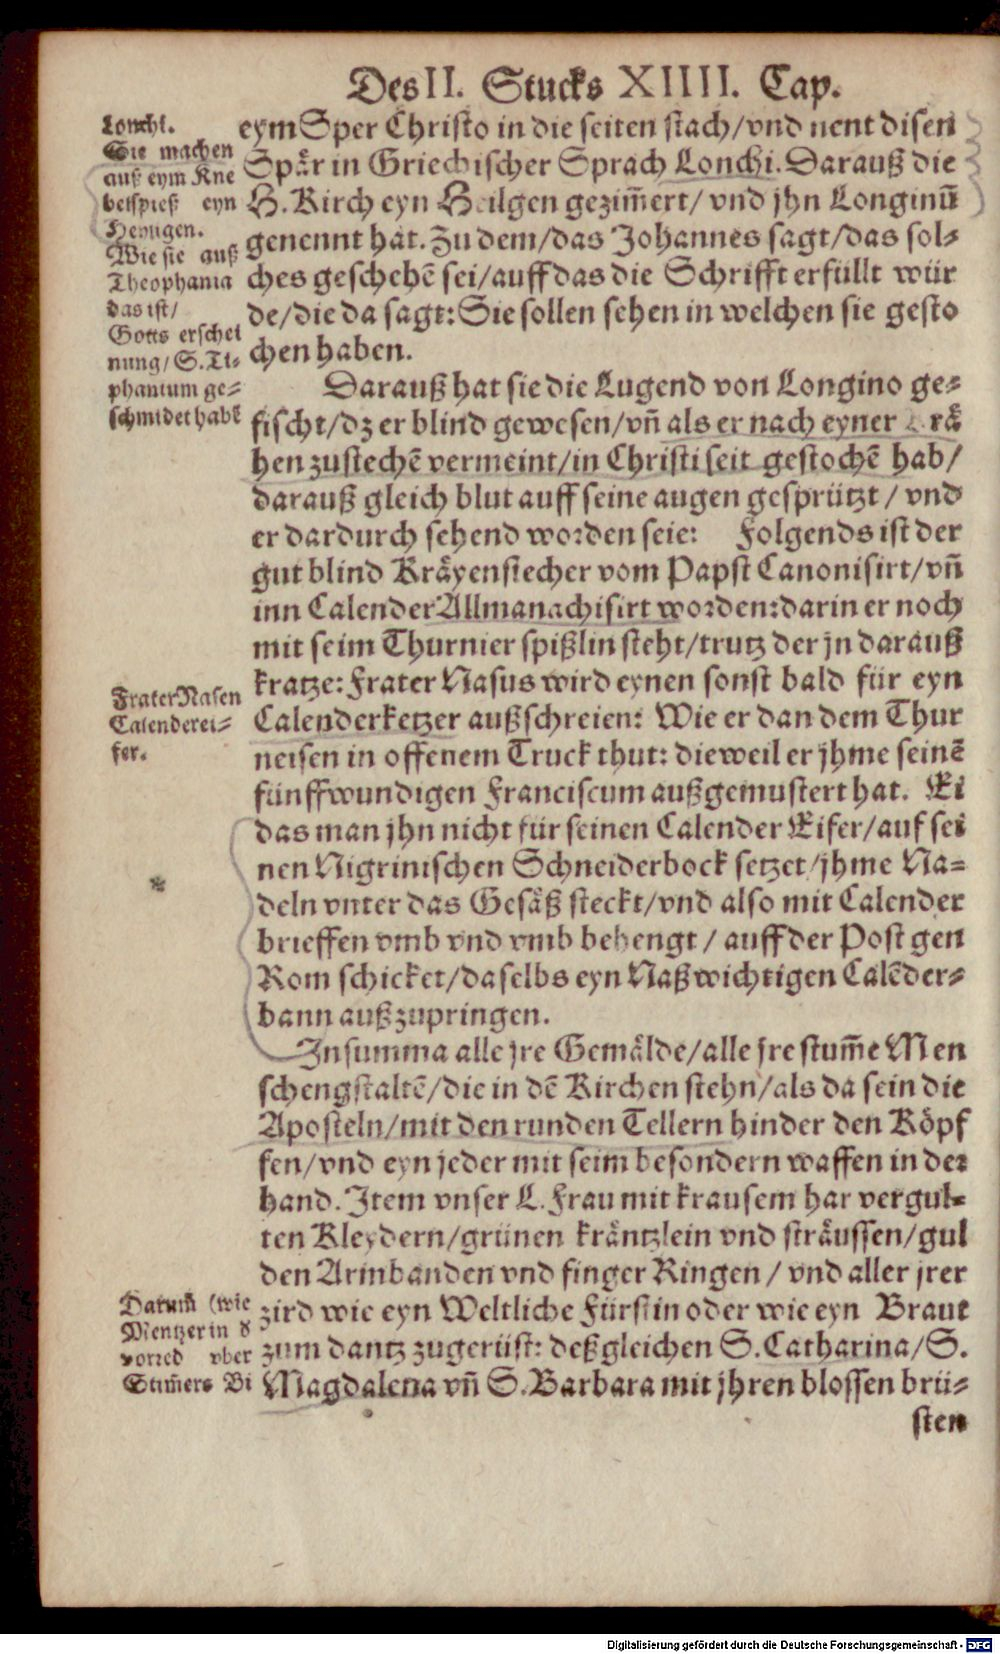 Des II. Stucks XIIII. Cap.
Lonchi.
Sie machen
auß eym Kne
belspieß eyn
Heyligen.
Wie sie auß
Theophania
das ist/
Gotts erschei
nung/ S. Ti-
phanium ge-
schmidet habē
eym Sper Christo in die seiten stach/vnd nent disen
Spår in Griechischer Sprach Lonchi. Darauß die
H. Kirch eyn Heilgen gezim̃ert/ vnd jhn Longinũ
genennt hat. Zu dem/das Johannes sagt/das sol-
ches geschehẽ sei/auff das die Schrifft erfüllt wür
de/die da sagt: Sie sollen sehen in welchen sie gesto
chen haben.
Darauß hat sie die Lugend von Longino ge-
fischt/dz er blind gewesen/vñ als er nach eyner Krå
hen zustechẽ vermeint/in Christi seit gestochẽ hab/
darauß gleich blut auff seine augen gesprützt/ vnd
er dardurch sehend worden seie: Folgends ist der
gut blind Kråyenstecher vom Papst Canonisirt/vñ
inn Calender Allmanachisirt worden: darin er noch
mit seim Thurnier spißlin steht/trutz der jn darauß
kratze: Frater Nasus wird eynen sonst bald für eyn
Calenderketzer außschreien: Wie er dan dem Thur
neisen in offenem Truck thut: dieweil er jhme seinẽ
fünffwundigen Franciscum außgemustert hat. Ei
das man jhn nicht für seinen Calender Eifer/auf sei
nen Nigrinischen Schneiderbock setzet/jhme Na-
deln vnter das Gesåß steckt/vnd also mit Calender
brieffen vmb vnd vmb behengt/ auff der Post gen
Rom schicket/daselbs eyn Naßwichtigen Calẽder-
bann außzupringen.
Frater Nasen
Calenderei-
fer.
In summa alle jre Gemålde/alle jre stum̃e Men
schengstaltẽ/die in dẽ Kirchen stehn/als da sein die
Aposteln/mit den runden Tellern hinder den Köpf
fen/vnd eyn jeder mit seim besondern waffen in der
hand. Item vnser L. Frau mit krausem har vergul-
ten Kleydern/grünen kråntzlein vnd stråussen/gul
den Armbanden vnd finger Ringen/ vnd aller jrer
zird wie eyn Weltliche Fürstin oder wie eyn Braut
zum dantz zugerüst: deßgleichen S. Catharina/S.
Magdalena vñ S. Barbara mit jhren blossen brü-
sten
Darum̃ (wie
Mentzer in d
vorred vber
Stim̃ers Bi
Digitalisierung gefördert durch die Deutsche Forschungsgemeinschaft - DFG